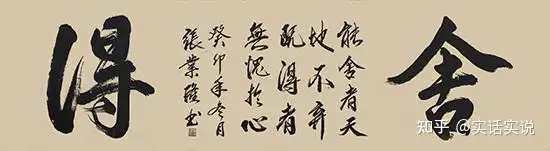 舍
能舍者天
地不弃
既得者
無愧於心
癸卯年冬月
張業书
得
知乎 @实话实说